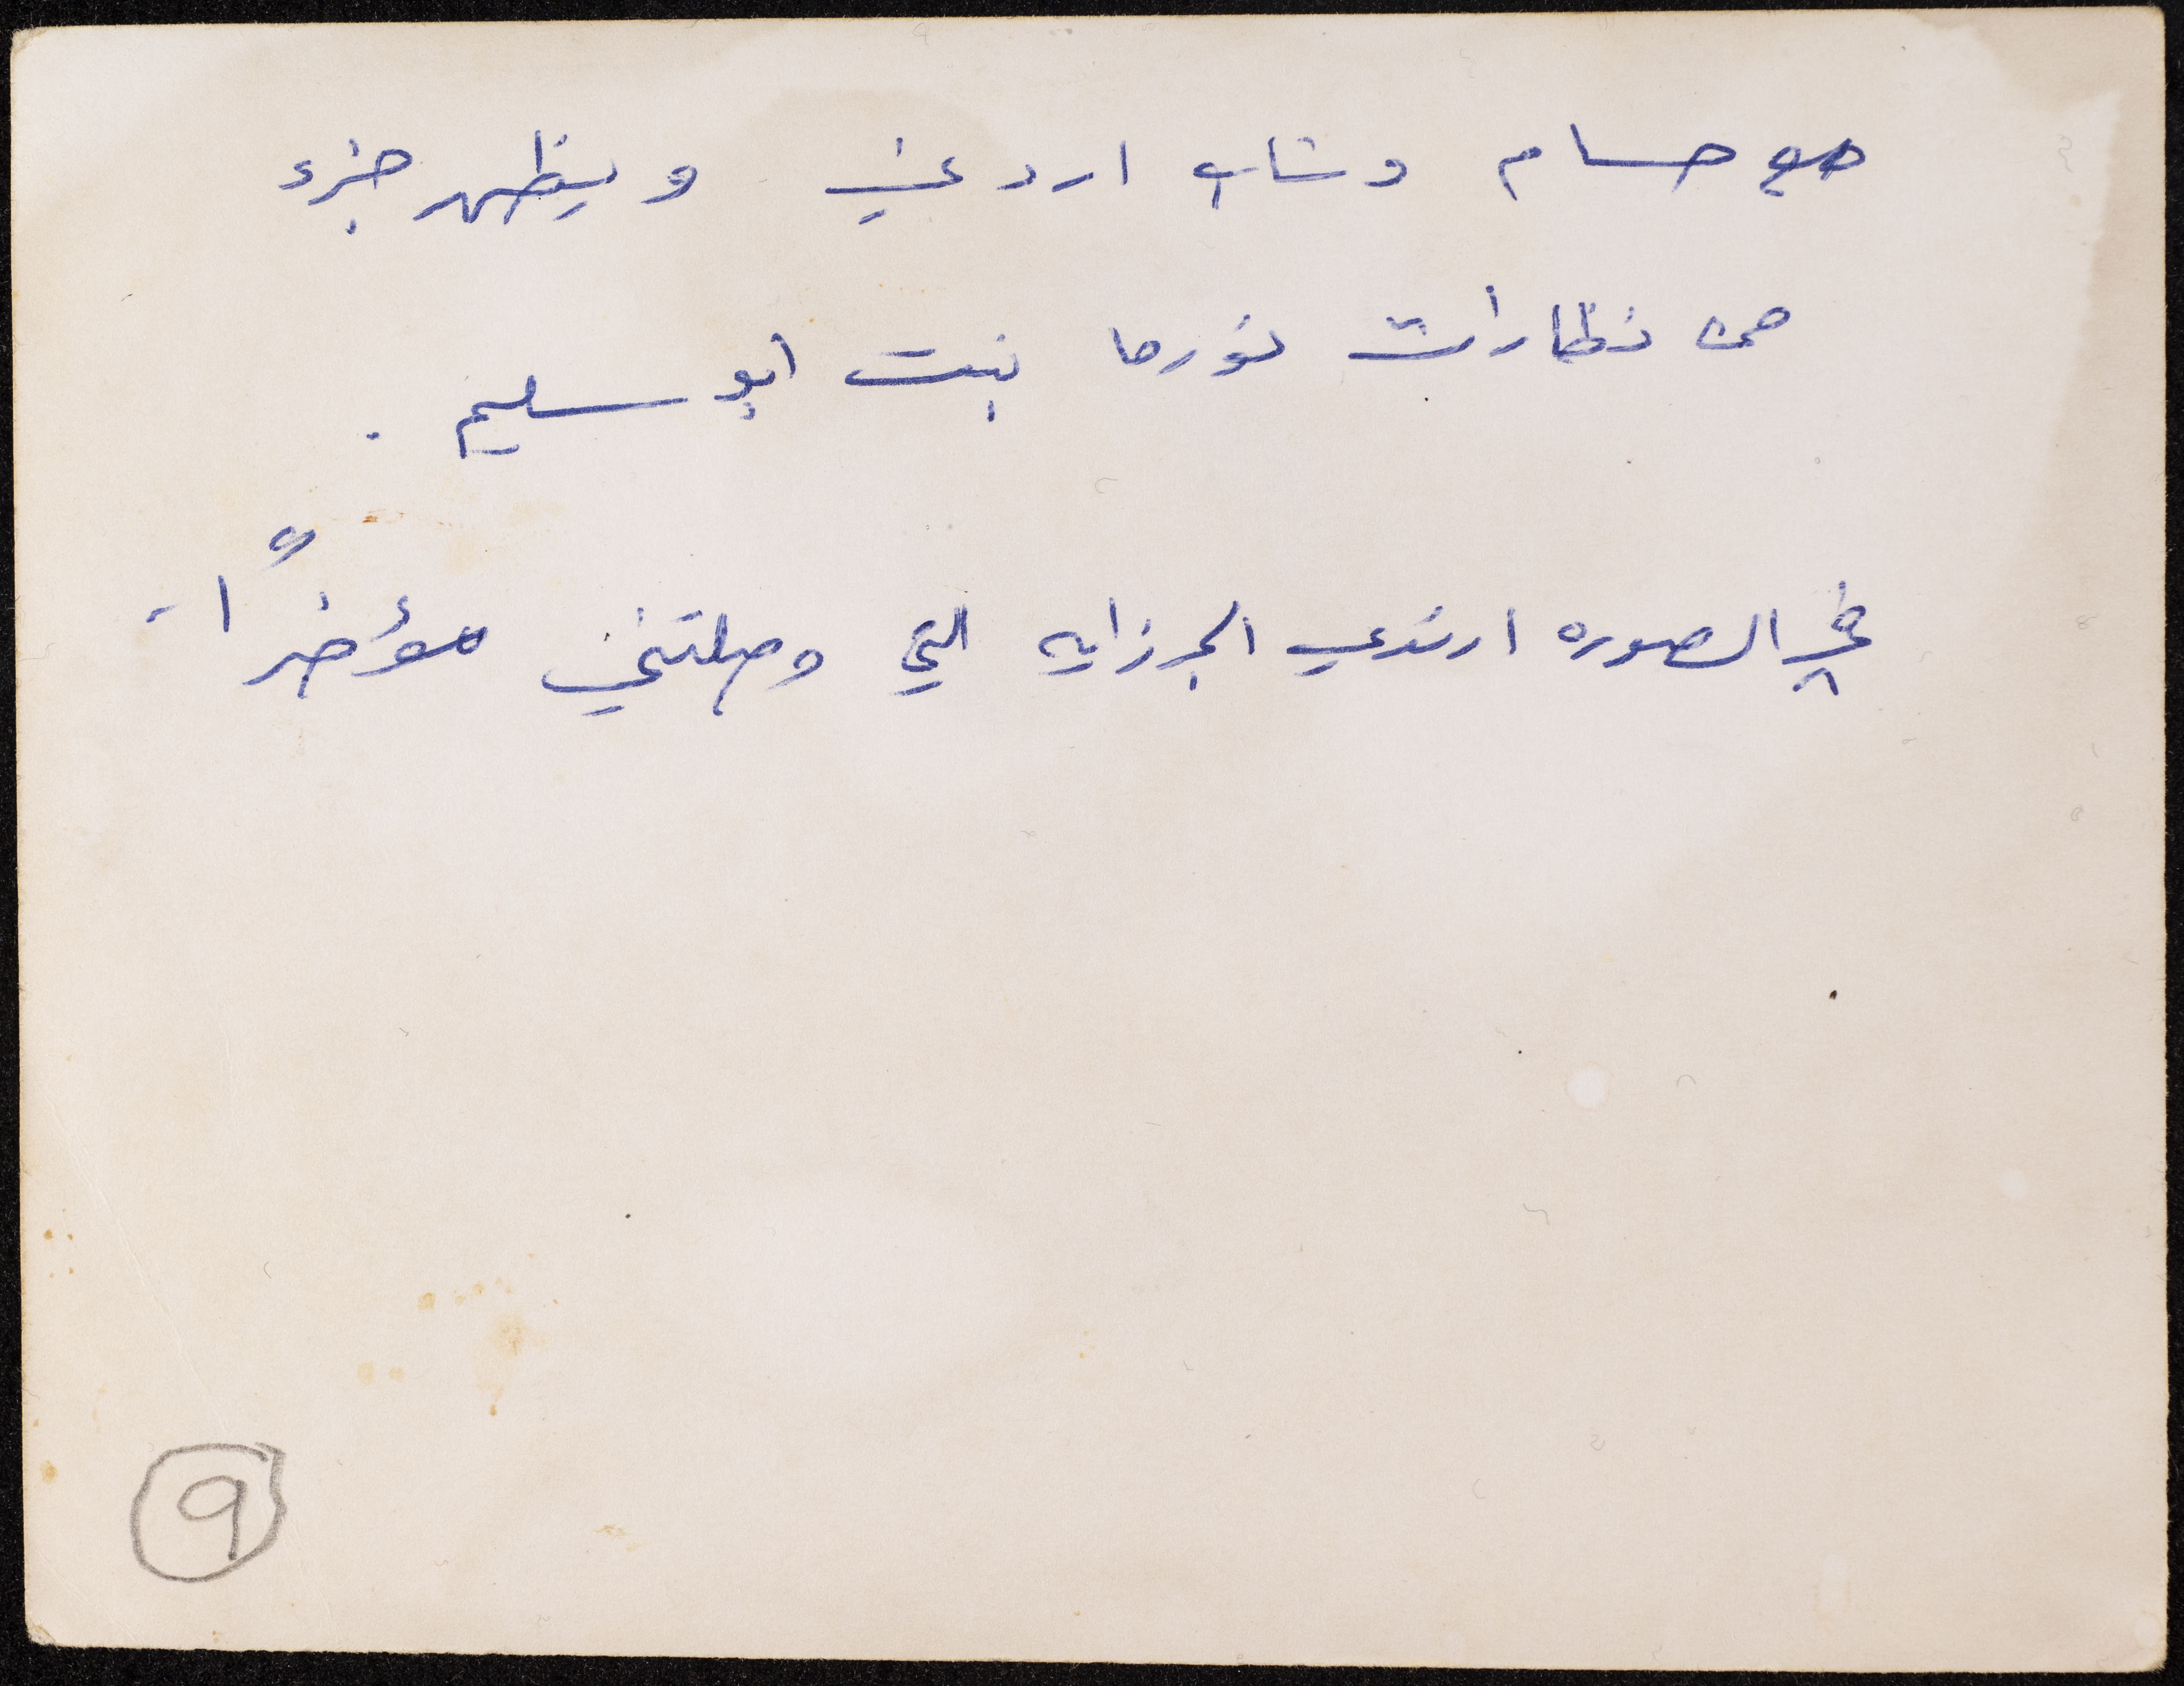 مع حسام وشاب اردني ويظهر جزء
من نظارات نورما بنت ابو سليم .
في الصوره ارتدي الجرزايه التي وصلتني مؤخراً .
9